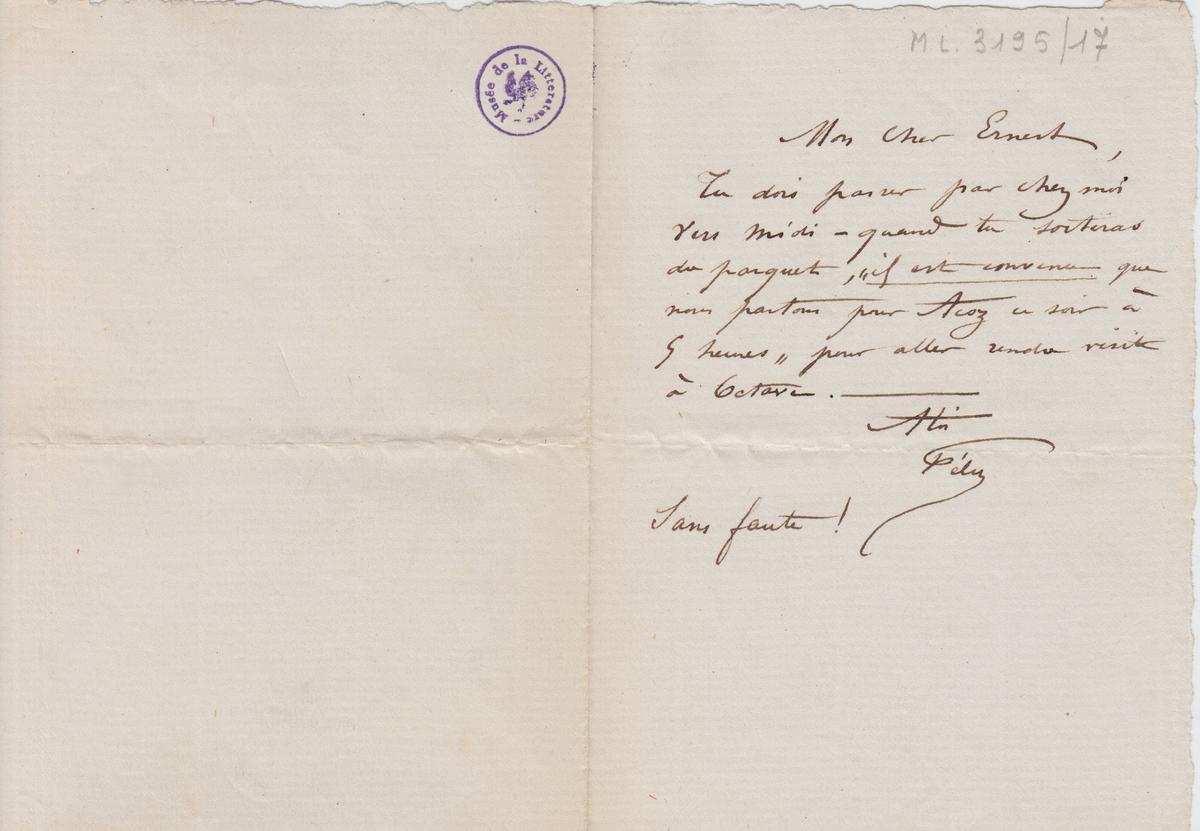 Musée de la Littérature -
ML. 3195/17
Mon cher Ernest,
Tu dois passer par chez moi
vers midi - quand tu sortiras
du parquet, „il est convenu que
nous partons pour Acoz ce soir à
5 heures „ pour aller rendre visite
à Octave.
À toi
Fély
Sans faute !